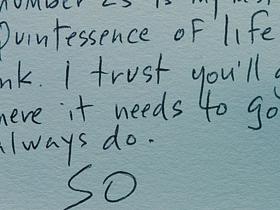 is my
Quintessence of life
I trust you'll
it needs to go
always do.
SO